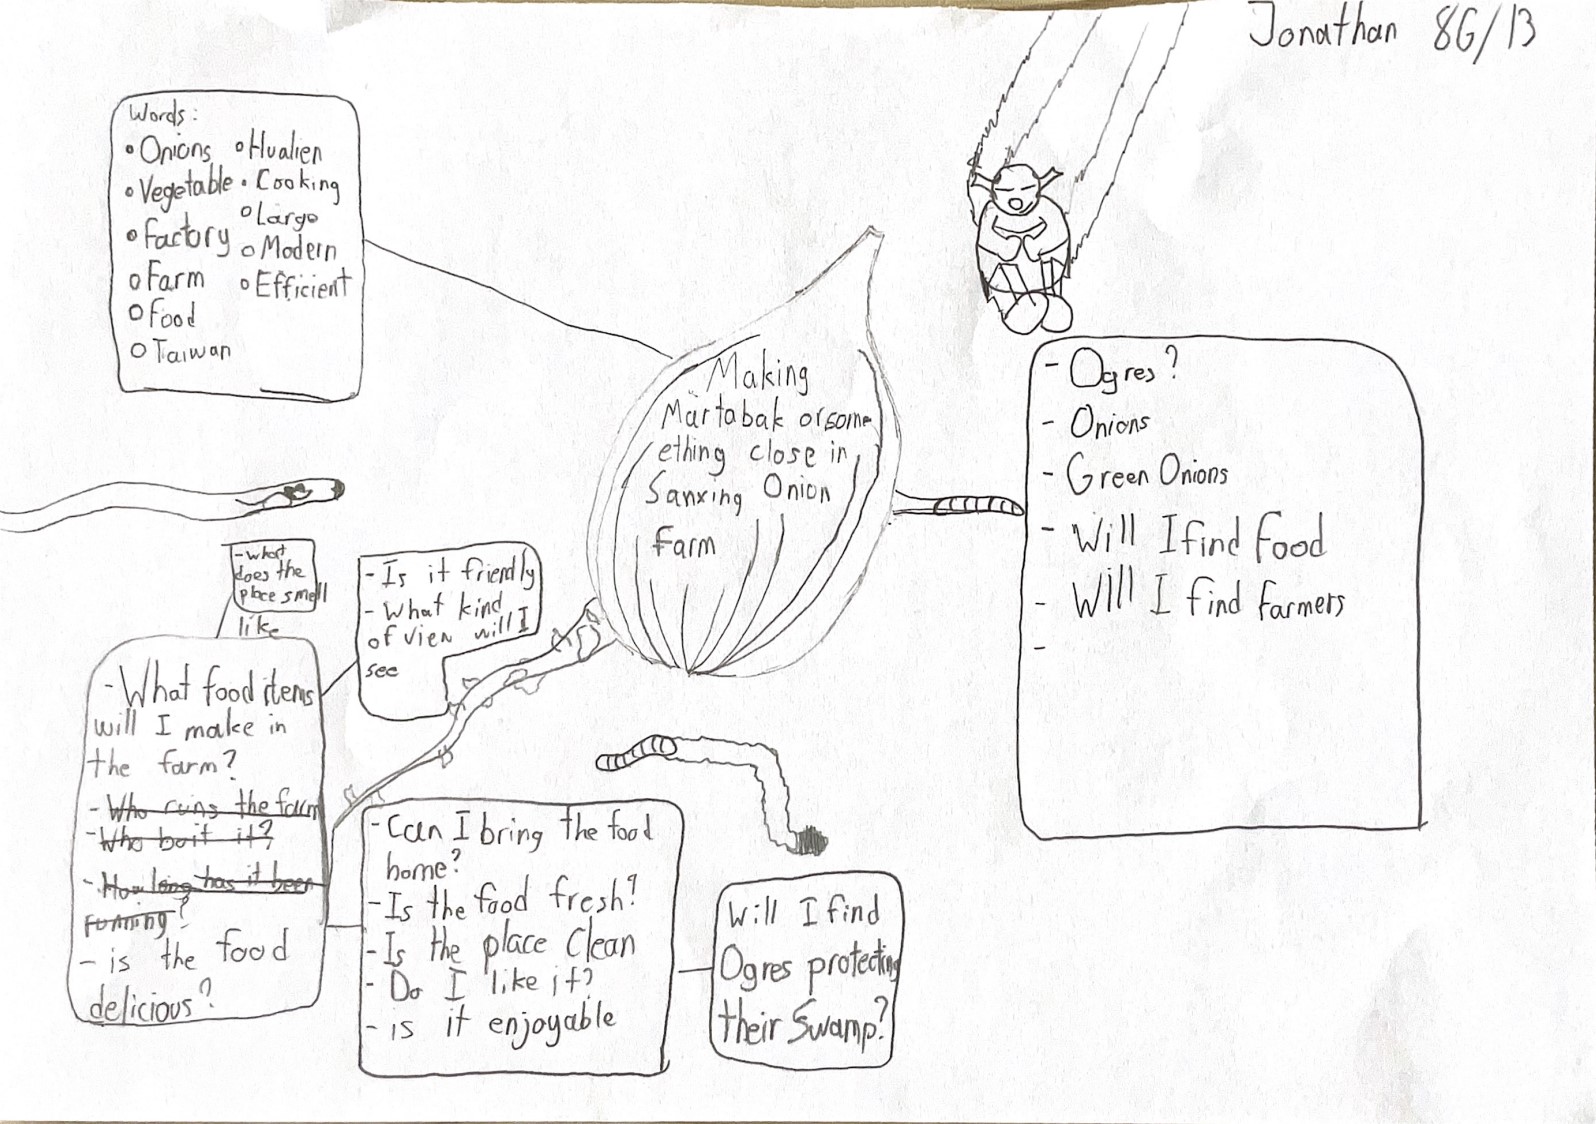 Jonathan 8G/13
Words:
• Onions
• Vegetable
• Factory
• Farm
• Food
• Taiwan
• Hualien
• Cooking
• Large
• Modern
• Efficient
Making
Martabak orsome
ething close in
Sanxing Onion
Farm
- Ogres?
- Onions
- Green Onions
- Will I find Food
- Will I find farmers
-
- what
does the
place smell
like
- Is it friendly
- What kind
of view will I
see
- What food items
will I make in
the farm?
- Who runs the farm
- Who boit it?
- How long has it been
running?
- is the food
delicious?
- Can I bring the food
home?
- Is the food fresh?
- Is the place Clean
- Do I like it?
- is it enjoyable
Will I find
Ogres protecting
their Swamp?